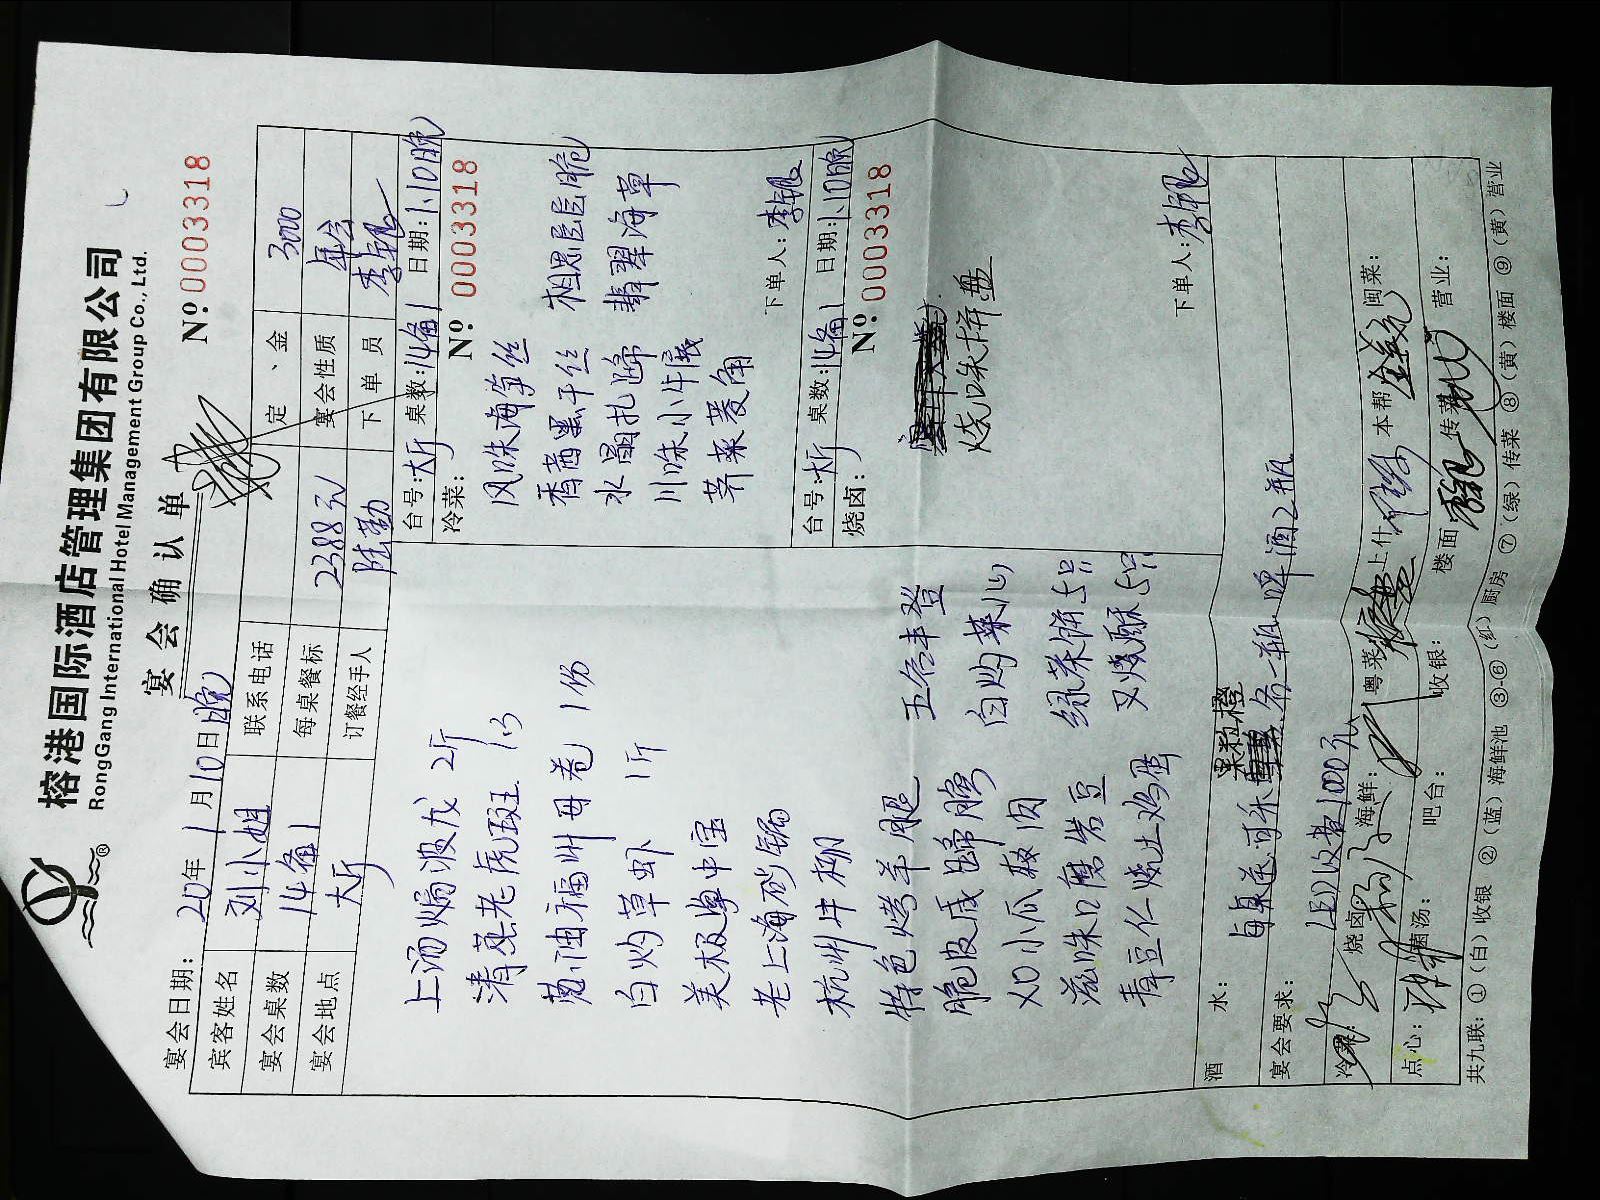 榕港国际酒店管理集团有限公司
RongGang International Hotel Management Group Co., Ltd.
宴会确认单
Nº 0003318
宴会日期: 20 年 1 月 10 日 晚
宾客姓名 刘小姐 联系电话 定、金 3000
宴会桌数 14备1 每桌餐标 2388元 宴会性质 年会
宴会地点 大厅 订餐经手人 陆勤 下单员 李银
上汤焗波龙 2斤
清蒸老虎斑 1.3
葱油福州母卷 1份
白灼草虾 1斤
美极掌中宝
老上海砂锅
杭州牛柳
特色烤羊腿 五谷丰登
脆皮盛蹄膀 白灼菜心
XO小瓜核肉 绿茶饼 5只
滋味口磨岩豆 叉烧酥 5只
青豆仁烧土鸡蛋
台号: 大厅 桌数: 14备1 日期: 1.10晚
冷菜: Nº 0003318
风味海笋丝
香茜黑干丝 相思脆
水晶扎蹄 翡翠海草
川味小牛展
荠菜菱角
下单人: 李银
台号: 大厅 桌数: 14备1 日期: 1.10晚
烧卤: Nº 0003318
烧味拼盘
下单人: 李银
酒水: 每桌送可乐 果粒橙 各一瓶 啤酒2瓶
宴会要求: LED收费1000元
冷菜: 烧卤: 海鲜: 粤菜: 上什: 本帮: 闽菜:
点心: 菌汤: 吧台: 收银: 楼面: 传菜: 营业:
共九联: ①(白)收银 ②(蓝)海鲜池 ③-⑥(红)厨房 ⑦(绿)传菜 ⑧(黄)楼面 ⑨(黄)营业